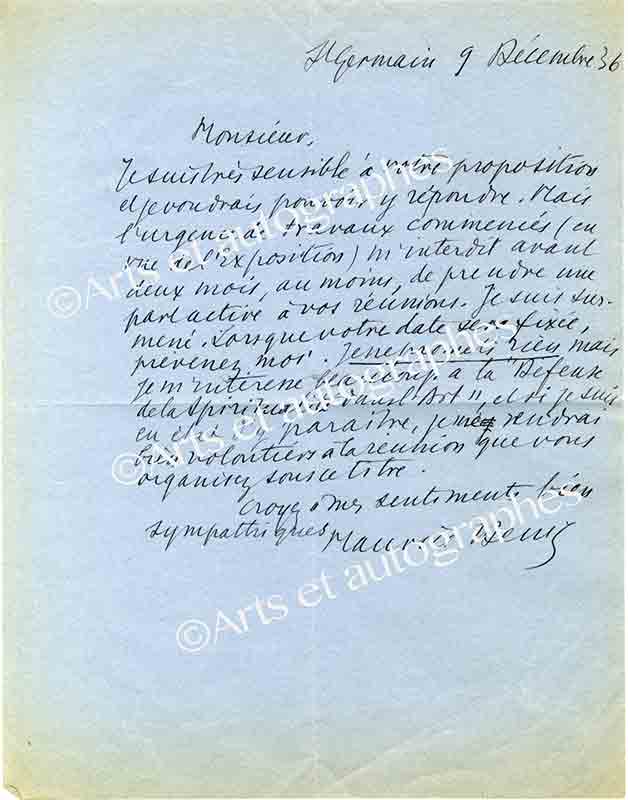 St Germain 9 Décembre 36
Monsieur,
Je suis très sensible à votre proposition
et je voudrais pouvoir y répondre. Mais
l'urgence de travaux commencés (en
vue de l'Exposition) m'interdit avant
deux mois, au moins, de prendre une
part active à vos réunions. Je suis sur-
mené. Lorsque votre date sera fixée,
prévenez moi. Je ne promets rien mais
je m'intéresse beaucoup à la "Défense
de la Spiritualité dans l'Art", et si je suis
en état d'y paraître, je me rendrai
bien volontiers à la réunion que vous
organisez sous ce titre.
Croyez à mes sentiments bien
sympathiques
Maurice Denis
©Arts et autographes
©Arts et autographes
©Arts et autographes